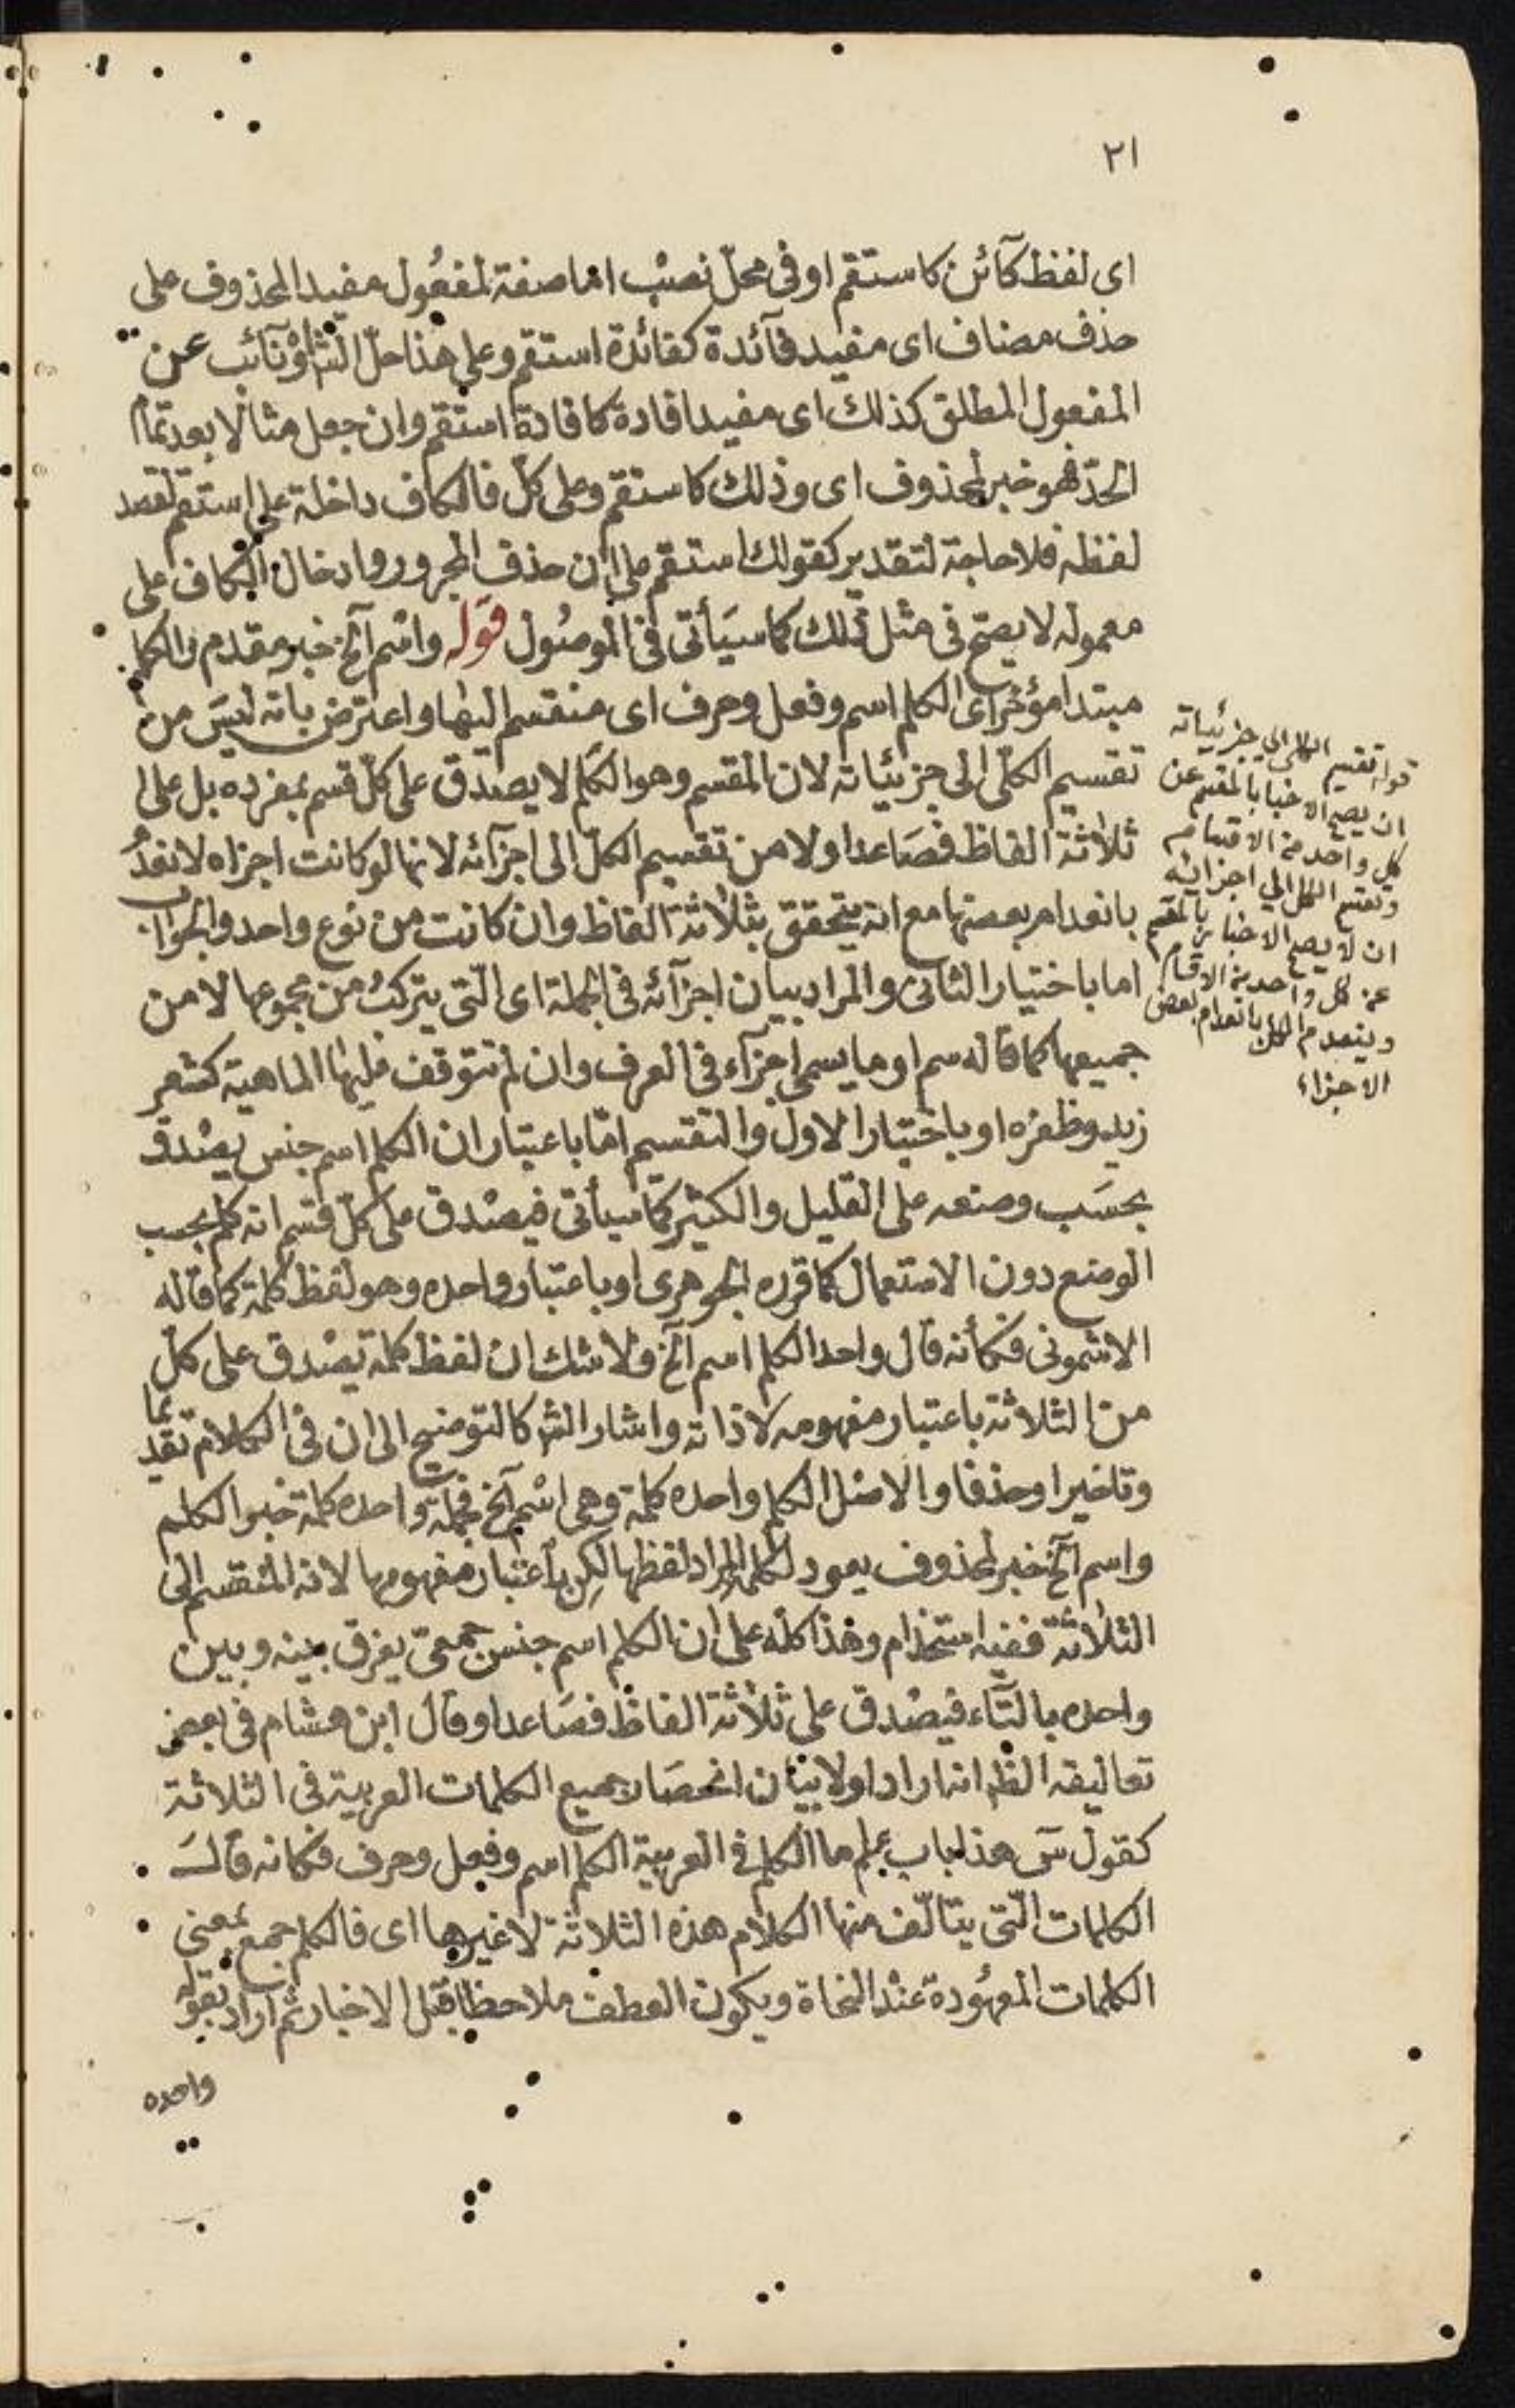 ٢١
اى لفظ كآئن كاستقم او فى محلّ نصب اما صفة لمفعول مفيد المحذوف على
حذف مضاف اى مفيد فآئدة كفائدة استقم وعلى هذا حلّ الش او نآئب عن
المفعول المطلق كذلك اى مفيدا فادة كافادة استقم وان جعل مثالا بعد تمام
الحدّ فهو خبر لمحذوف اى وذلك كاستقم وعلى كلّ فالكاف داخلة على استقم لقصد
لفظه فلا حاجة لتقدير كقولك استقم على ان حذف المجرور وادخال الكاف على
معموله لا يصحّ فى مثل ذلك كما سيأتى فى الموصول قوله واسم آلخ خبر مقدم والكلم
مبتدا مؤخر اى الكلم اسم وفعل وحرف اى منقسم اليها واعترض بانه ليس من
تقسيم الكلّى الى جزئياته لان المقسم وهو الكلم لا يصدق على كلّ قسم بمفرده بل على
ثلاثة الفاظ فصاعدا ولا من تقسيم الكلّ الى اجزآئه لانها لو كانت اجزاه لانعدم
بانعدام بعضها مع انه يتحقق بثلاثة الفاظ وان كانت من نوع واحد والجواب
اما باختيار الثانى والمراد بيان اجزآئه فى الجملة اى الّتى يتركب من مجموعها لا من
جميعها كما قاله سم او ما يسمى اجزآء فى العرف وان لم تتوقف عليها الماهية كشعر
زيد وظفره او باختيار الاول والتقسيم امّا باعتبار ان الكلم اسم جنس يصدق
بحسب وضعه على القليل والكثير كما سيأتى فيصدق على كلّ قسم انه كلم بحسب
الوضع دون الاستعمال كما قرره الجوهرى او باعتبار واحده وهو لفظ كلمة كما قاله
الاشمونى فكأنه قال واحد الكلم اسم آلخ ولا شك ان لفظ كلمة يصدق على كلّ
من الثلاثة باعتبار مفهومه لا ذاته واشار الش كالتوضيح الى ان فى الكلام تقديما
وتاخيرا وحذفا والاصل الكلم واحده كلمة وهى اسم آلخ فجملة واحده كلمة خبر الكلم
واسم آلخ خبر لمحذوف يعود لكلمة المراد لفظها لكن باعتبار مفهومها لانه المنقسم الى
الثلاثة ففيه استخدام وهذا كله على ان الكلم اسم جنس جمعىّ يفرق بينه وبين
واحده بالتآء فيصدق على ثلاثة الفاظ فصاعدا وقال ابن هشام فى بعض
تعاليقه الظ انه اراد اولا بيان انحصار جميع الكلمات العربية فى الثلاثة
كقول س هذا باب علم ما الكلم فى العربية الكلم اسم وفعل وحرف فكانه قال
الكلمات الّتى يتالّف منها الكلام هذه الثلاثة لا غيرها اى فالكلم جمع بمعنى
الكلمات المعهودة عند النحاة ويكون العطف ملاحظا قبل الاخبار ثم اراد بقوله
واحده
قوله تقسيم الكلى الى جزئياته
ان يصح الاخبار بالمقسم عن
كل واحد من الاقسام
وتقسيم الكل الى اجزائه
ان لا يصح الاخبار بالمقسم
عن كل واحد من الاقسام
وينعدم الكل بانعدام بعض
الاجزاء